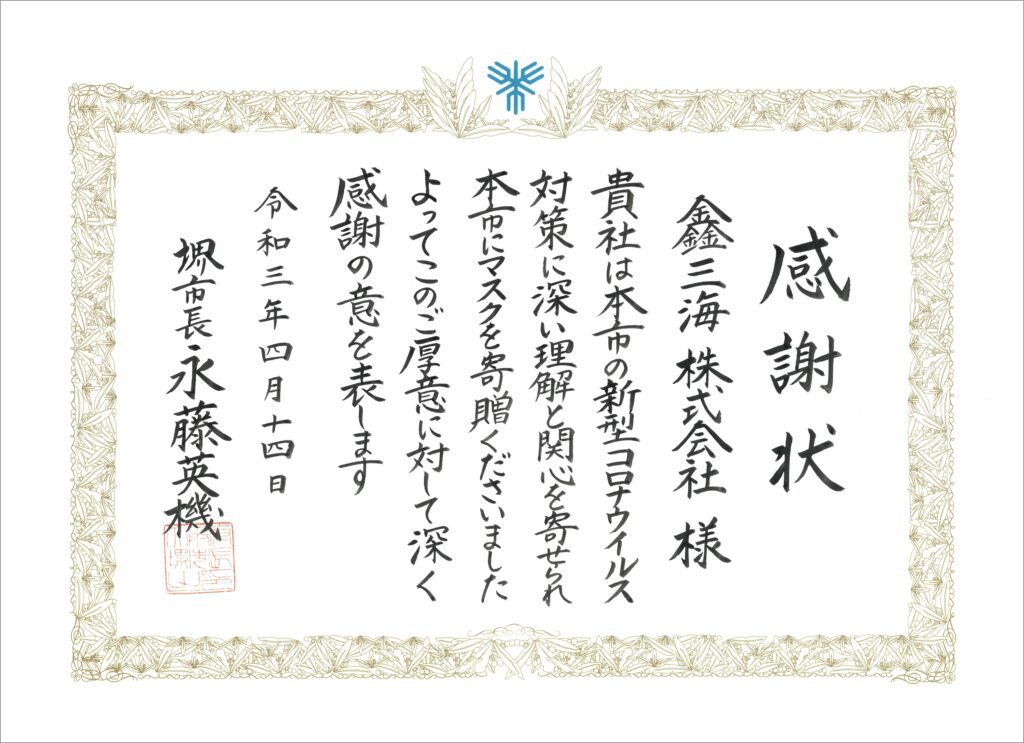 感謝状
鑫三海 株式会社 様
貴社は本市の新型コロナウイルス
対策に深い理解と関心を寄せられ
本市にマスクを寄贈くださいました
よってこのご厚意に対して深く
感謝の意を表します
令和三年四月十四日
堺市長 永藤英機